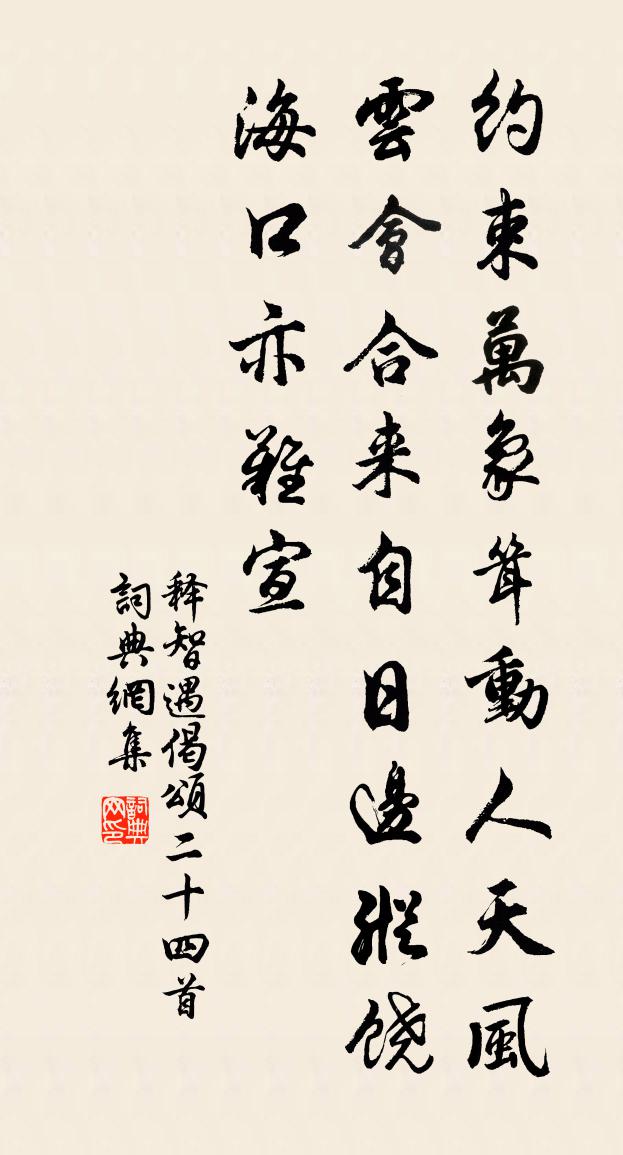 約束萬象耸動人天風
雲會合来自日邊縱饶
海口亦難宣
释智遇偈頌二十四首
詞典網集
詞典网印